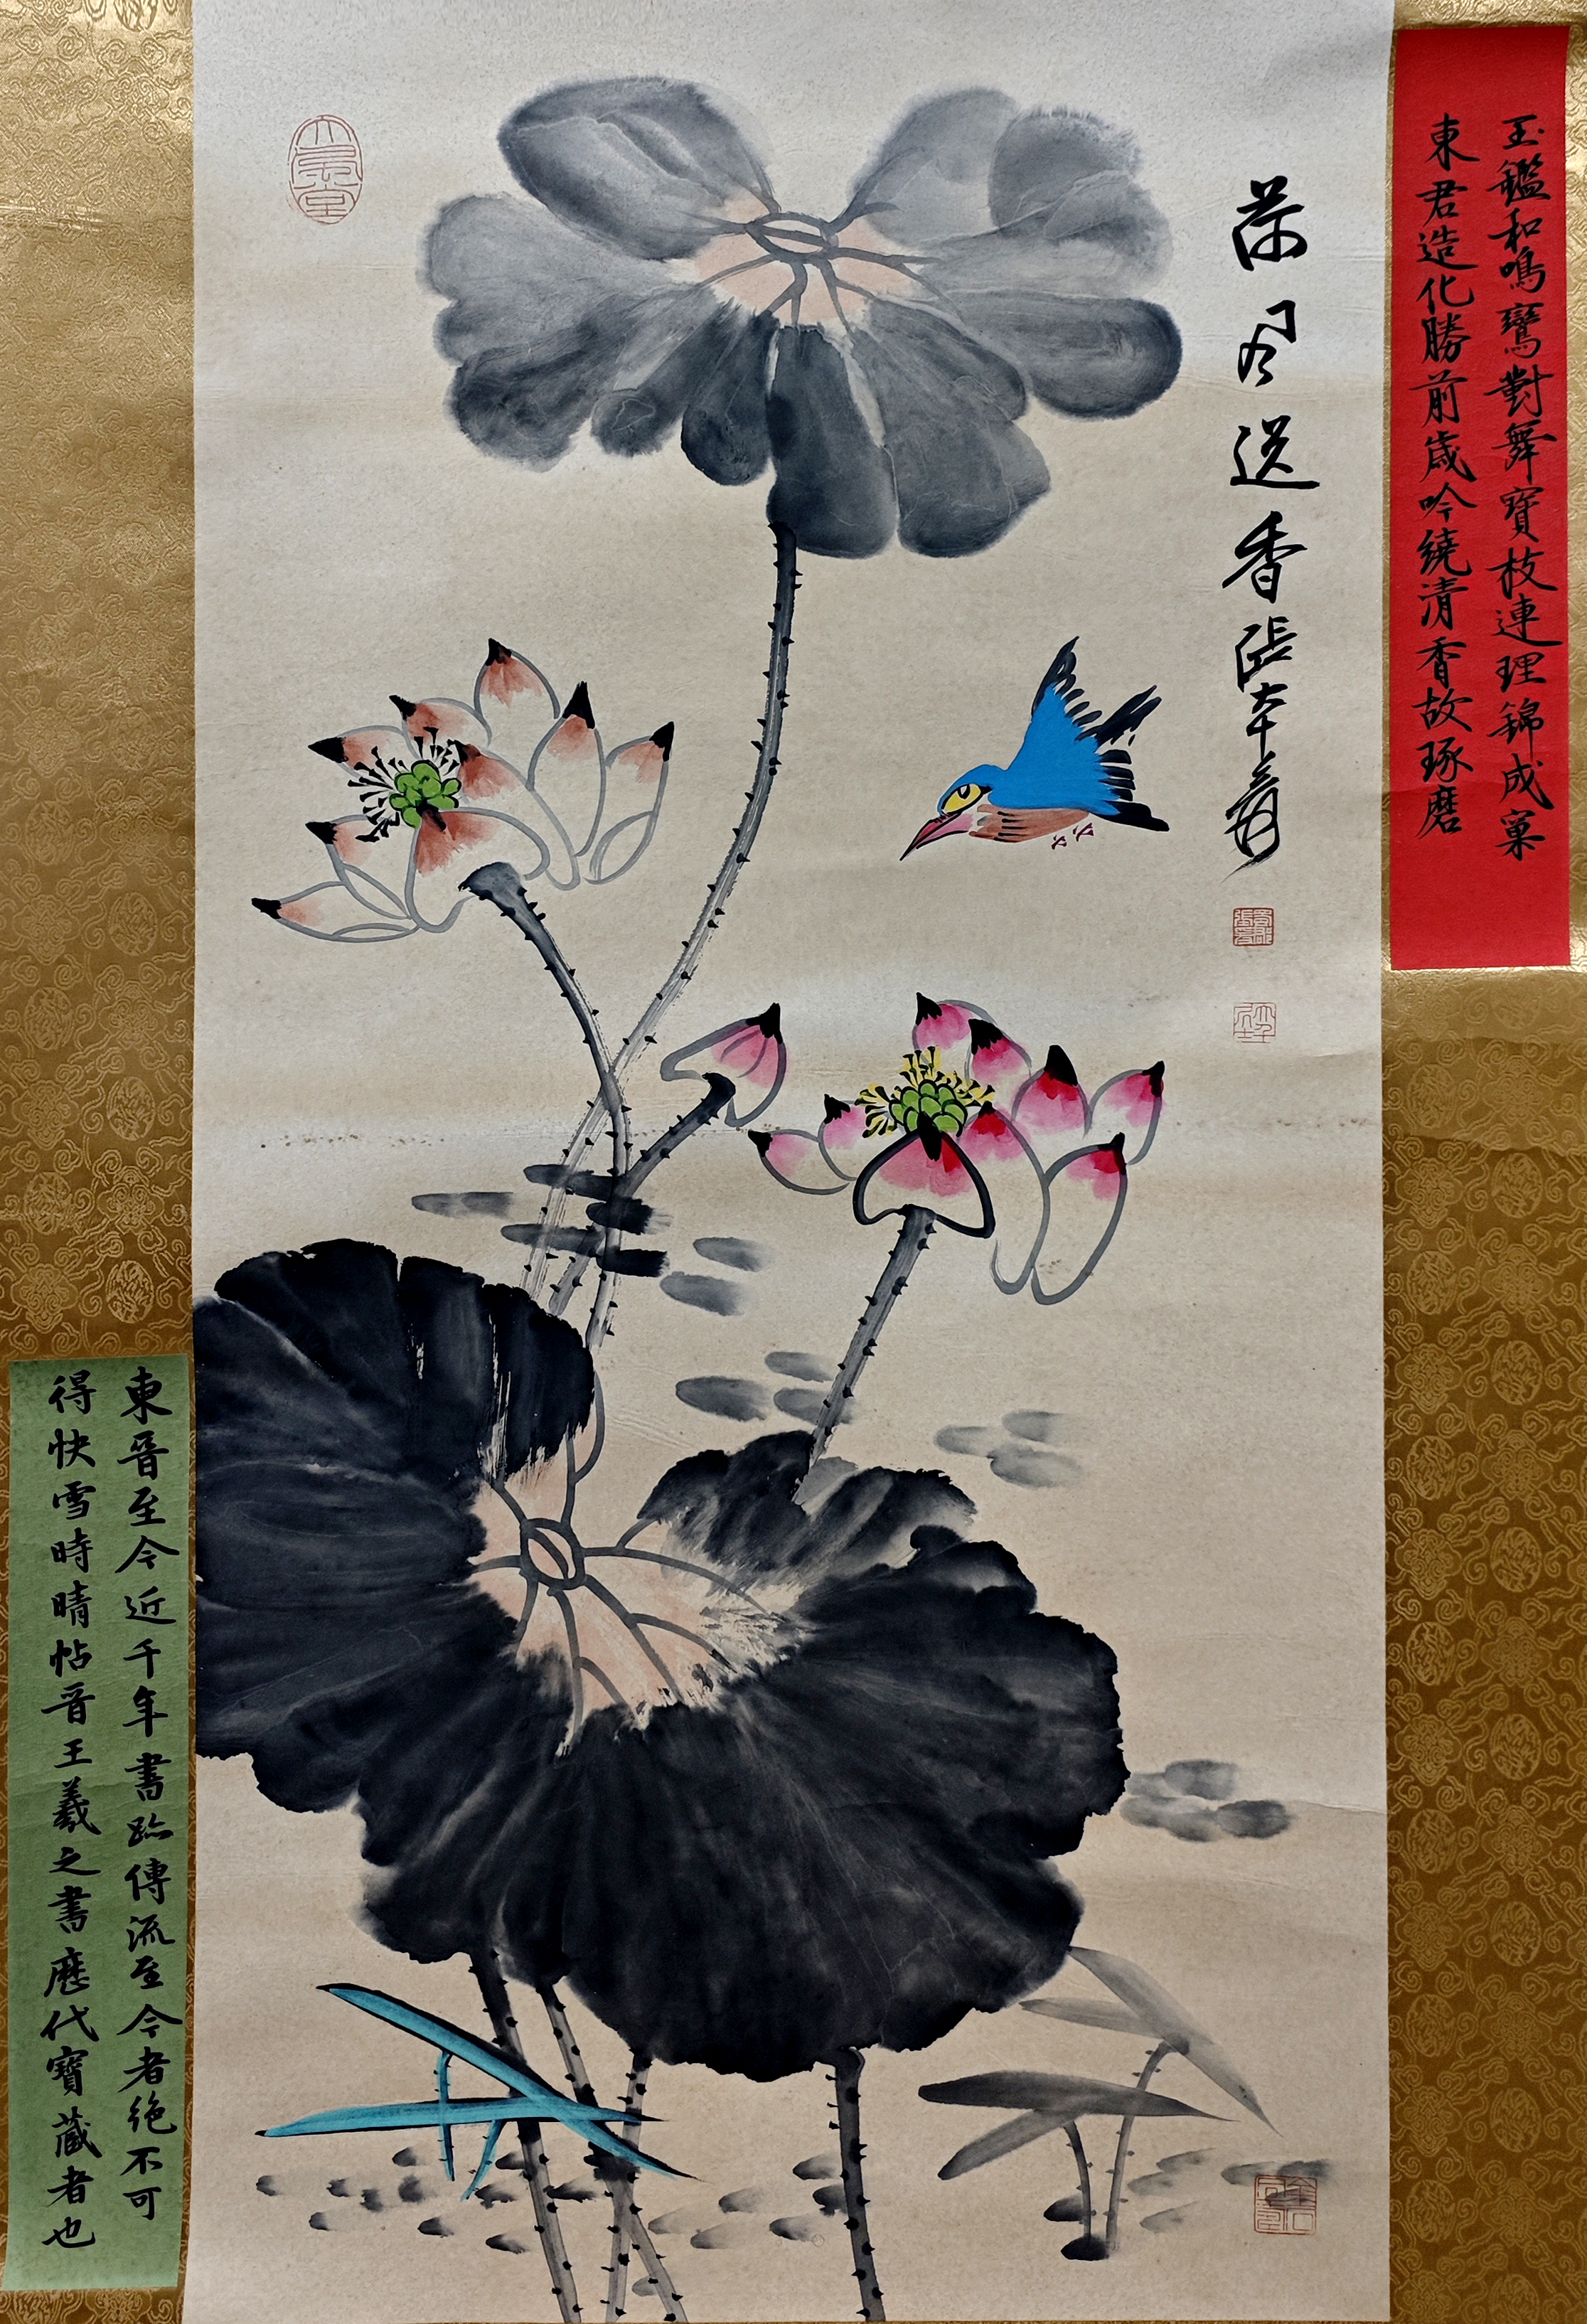 玉鑑和鳴鸞對舞寶枝連理錦成窠
東君造化勝前歲吟繞清香故琢磨
荷風送香張大千爰
大風堂
東晉至今近千年書跡傳流至今者絶不可
得快雪時晴帖晉王羲之書歷代寶藏者也